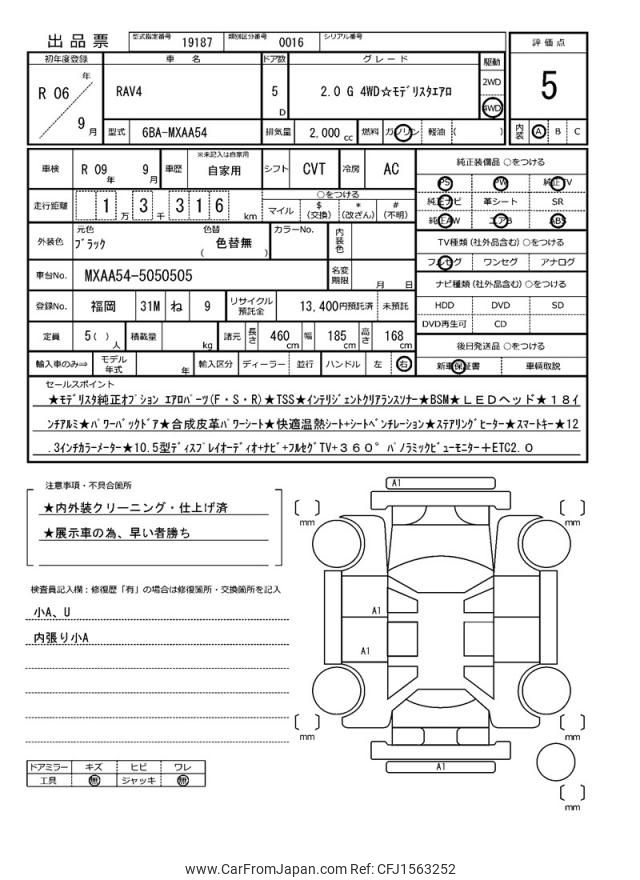 出品票
型式指定番号 19187 類別区分番号 0016 シリアル番号
評価点
5
初年度登録 車名 ドア数 グレード 駆動
R 06 年 9 月
RAV4
5 D
2.0 G 4WD☆ﾓﾃﾞﾘｽﾀｴｱﾛ
2WD
4WD
型式 6BA-MXAA54 排気量 2,000 cc 燃料 ガソリン 軽油 ( )
内装 A B C
車検 R 09 年 9 月 車歴 ※未記入は自家用 自家用 シフト CVT 冷房 AC
純正装備品 ○をつける
PS PW 純正TV
純正ナビ 革シート SR
純正AW エアB ABS
走行距離 1 万 3 千 316 km
○をつける
マイル $(交換) *(改ざん) #(不明)
外装色 元色 ﾌﾞﾗｯｸ 色替 ( 色替無 ) カラーNo. 内装色
TV種類(社外品含む)○をつける
フルセグ ワンセグ アナログ
車台No. MXAA54-5050505 名変期限 月 日
ナビ種類(社外品含む)○をつける
HDD DVD SD
DVD再生可 CD
登録No. 福岡 31M ね 9 リサイクル預託金 13,400円預託済 未預託
定員 5( )人 積載量 kg 諸元 長さ 460 cm 幅 185 cm 高さ 168 cm
後日発送品 ○をつける
新車保証書 車輌取説
輸入車のみ⇒ モデル年式 年 輸入区分 ディーラー 並行 ハンドル 左 右
セールスポイント
★ﾓﾃﾞﾘｽﾀ純正ｵﾌﾟｼｮﾝ ｴｱﾛﾊﾟｰﾂ(F・S・R)★TSS★ｲﾝﾃﾘｼﾞｪﾝﾄｸﾘｱﾗﾝｽｿﾅｰ★BSM★ＬＥＤヘッド★１８ｲ
ﾝﾁｱﾙﾐ★ﾊﾟﾜｰﾊﾞｯｸﾄﾞｱ★合成皮革ﾊﾟﾜｰｼｰﾄ★快適温熱ｼｰﾄ+ｼｰﾄﾍﾞﾝﾁﾚｰｼｮﾝ★ｽﾃｱﾘﾝｸﾞﾋｰﾀｰ★ｽﾏｰﾄｷｰ★12
.3ｲﾝﾁｶﾗｰﾒｰﾀｰ★10.5型ﾃﾞｨｽﾌﾟﾚｲｵｰﾃﾞｨｵ+ﾅﾋﾞ+ﾌﾙｾｸﾞTV+３６０° ﾊﾟﾉﾗﾐｯｸﾋﾞｭｰﾓﾆﾀｰ＋ETC2.0
注意事項・不具合箇所
★内外装クリーニング・仕上げ済
★展示車の為、早い者勝ち
検査員記入欄:修復歴「有」の場合は修復箇所・交換箇所を記入
小A、U
内張り小A
A1
mm
mm
A1
A1
mm
mm
A1
mm
ドアミラー キズ ヒビ ワレ
工具 無 ジャッキ 無
www.CarFromJapan.com Ref: CFJ1563252